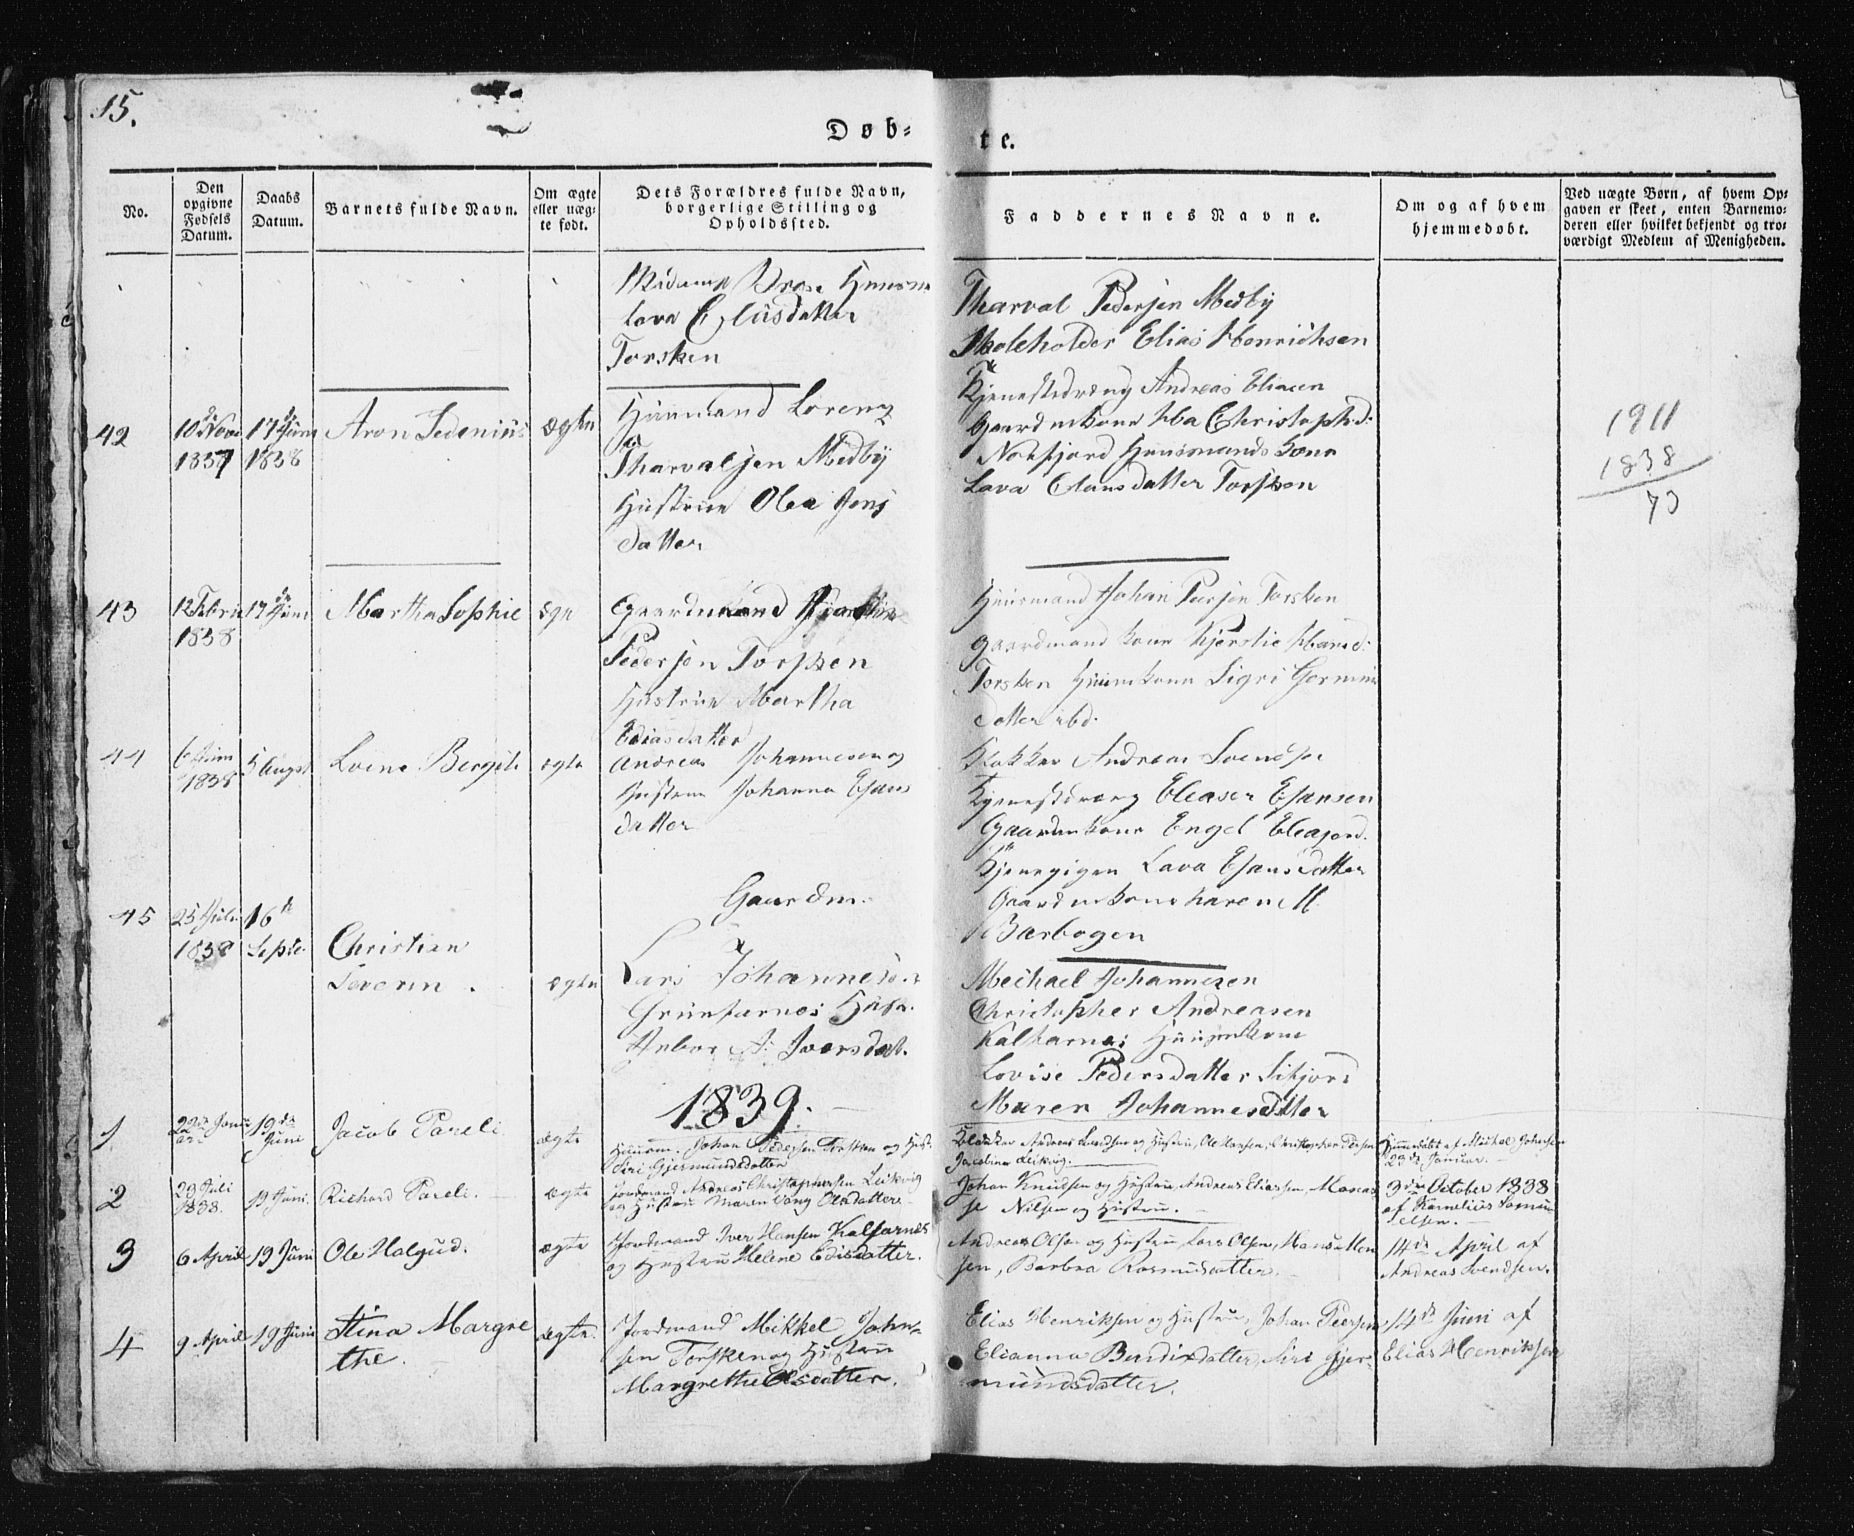 15.
Døb-
te.
No.
Den opgivne Fødsels Datum.
Daabs Datum.
Barnets fulde Navn.
Om ægte eller uægte født.
Dets Forældres fulde Navn, borgerlige Stilling og Opholdssted.
Faddernes Navne.
Om og af hvem hjemmedøbt.
Ved uægte Børn, af hvem Opgaven er skeet, enten Barnemoderen eller hvilket bekjendt og troværdigt Medlem af Menigheden.
Torsken
Tharval Pedersen Medby
Skoleholder Elias Henrichsen
42
10de Nov
1837
17de Juni
1838
Aron Sedenius
ægte
Huusmand Lorenz
Tharvalsen Medby
Hustrue Olea Jens
datter
Tjenestedreng Andreas Eliasen
Gaardmkone Christophd:
Huusmands
Lava Clausdatter Torsken
1911
1838
73
43
12 Febru
1838
17de Juni
Martha Sophie
Gaardmand
Pedersen Torsken
Hustrue Martha
Ediasdatter
Huusmand Johan Peersen Torsken
gaardmand kone Kjerstie Hansd:
Torsken Huusmkone Sigri Germun
datter ibd.
44
6 Juni
1838
5 Augst
ægte
Andreas Johannesen og
Hustrue Johanna Esaus
datter
Klokker Andreas Svendsen
Tjenestdreng Eleaser Esausen
Gaardmkone Engel Eleasard.
Tjenepigen Lava Esausdatter
Gaardmkone Karen M.
Bærbogen
45
25 Juli
1838
16de
Septr.
Christian
Severin.
ægte
Gaardm.
Lars Johannesen
Grunfarnes
Iversdat.
Mechael Johannesen
Christopher Andreasen
Kalfarnes Huusmkone
Lovise Pedersdatter Sifjord
Maren Johannesdatter
1839.
1
22de Janu
ar
19de
Juni
Jacob Pareli
ægte
Huusm. Johan Pedersen Torsken og Hust.
Siri Gjermundsdatter
Andreas Svendsen og Hustru, Ole Hansen, Christopher Persen
Jacobina Leikvig.
Hjemmedøbt af Mickel Johansen
23de Januar.
2
29 Juli
1838.
19 Juni.
Richard Pareli.
ægte
Jordmand Andreas Christophersen Leikvig
og Hustru Maren Vang Olsdatter
Johan Knudsen og Hustru, Andreas Eliassen, Manas
se Nilsen og Hustru.
3die October 1838
af Kornelius Samu
elsen.
3
6 April
19 Juni
Ole Halgud.
ægte
Jordmand Iver Hansen Kalfarnes
og Hustru Helene Edisdatter.
Andreas Olsen og Hustru, Lars Olsen, Hans Atten
sen, Barbra Rasmusdatter.
14de April af
Andreas Svendsen.
4
9 April
19 Juni
Stina Margre
the.
ægte.
Jordmand Mikkel John-
sen Torsken og Hustru
Margrethe Olsdatter.
Elias Henriksen og Hustru, Johan Peersen
Elianna Bendixdatter, Siri Gjer-
mundsdatter.
14de Juni af
Elias Henriksen